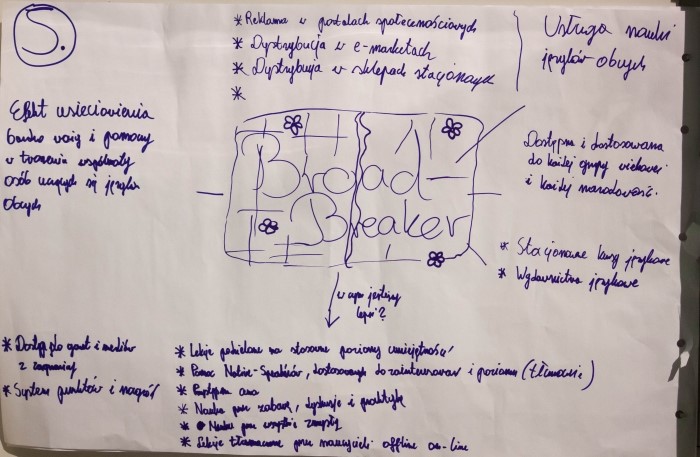 S.
* Reklama w portalach społecznościowych
* Dystrybucja w e-marketach
* Dystrybucja w sklepach stacjonarnych
*
Usługa nauki
języków obcych
Efekt usieciowienia
bardzo ważny i pomocny
w tworzeniu wspólnoty
osób uczących się języków
obcych
Broad-
Breaker
Dostępna i dostosowana
do każdej grupy wiekowej
i każdej narodowości.
* Stacjonarne kursy językowe
* Wydawnictwa językowe
w czym jesteśmy
lepsi?
* Dostęp do gazet i mediów
z zagranicy
* System punktów i nagród
* Lekcje podzielone na stosowne poziomy umiejętności
* Pomoc Native-Speakerów, dostosowanych do zainteresowań i poziomu (tłumacze)
* Przystępna cena
* Nauka przez zabawę, dyskusje i praktykę
* Nauka przez wszystkie zmysły
* Lekcje tłumaczone przez nauczycieli offline on-line